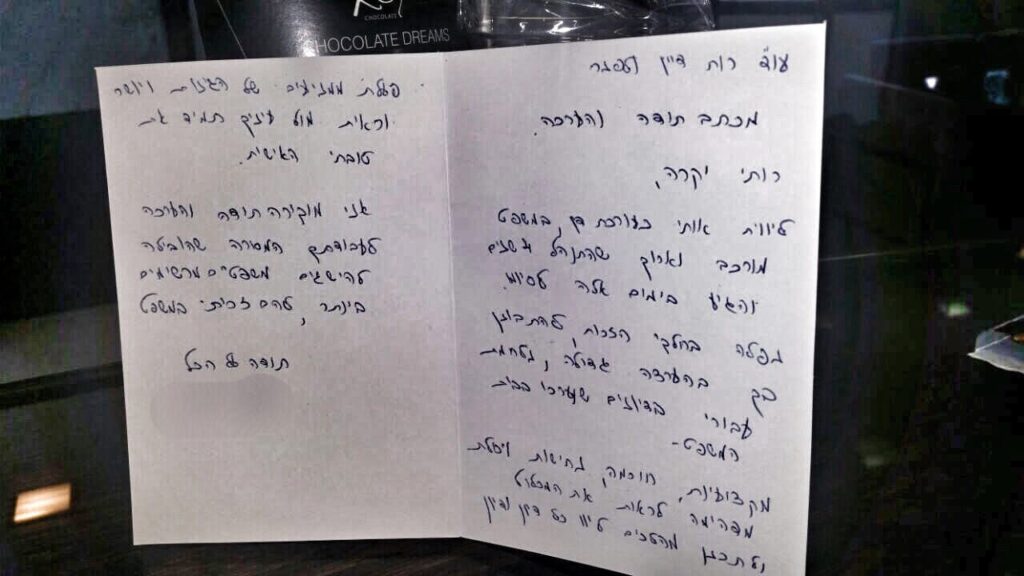 CHOCOLATE
CHOCOLATE DREAMS
עו"ד רות דיין וולפנר
מכתב תודה והערכה.
רותי יקרה,
ליווית אותי כעורכת דין, במשפט
מורכב וארוך שהתנהל שנים
והגיע בימים אלה לסיומו.
נפלה בחלקי הזכות, להתבונן
בך בהערצה גדולה, נלחמת
עבורי בדיונים שנערכו בבית
המשפט-
מקצועיות, חוכמה, נחישות ויכולת
מדהימה לראות את המכלול
ולתכנן מהלכים ליוו כל דיון ודיון
פעלת ממניעים של הגינות ויושר
וראית מול עיניך תמיד את
טובתי האישית.
אני מוקירה תודה והערכה
לעבודתך המסורה שהובילה
להישגים משפטיים מרשימים
ביותר, להם זכיתי במשפט
תודה על הכל